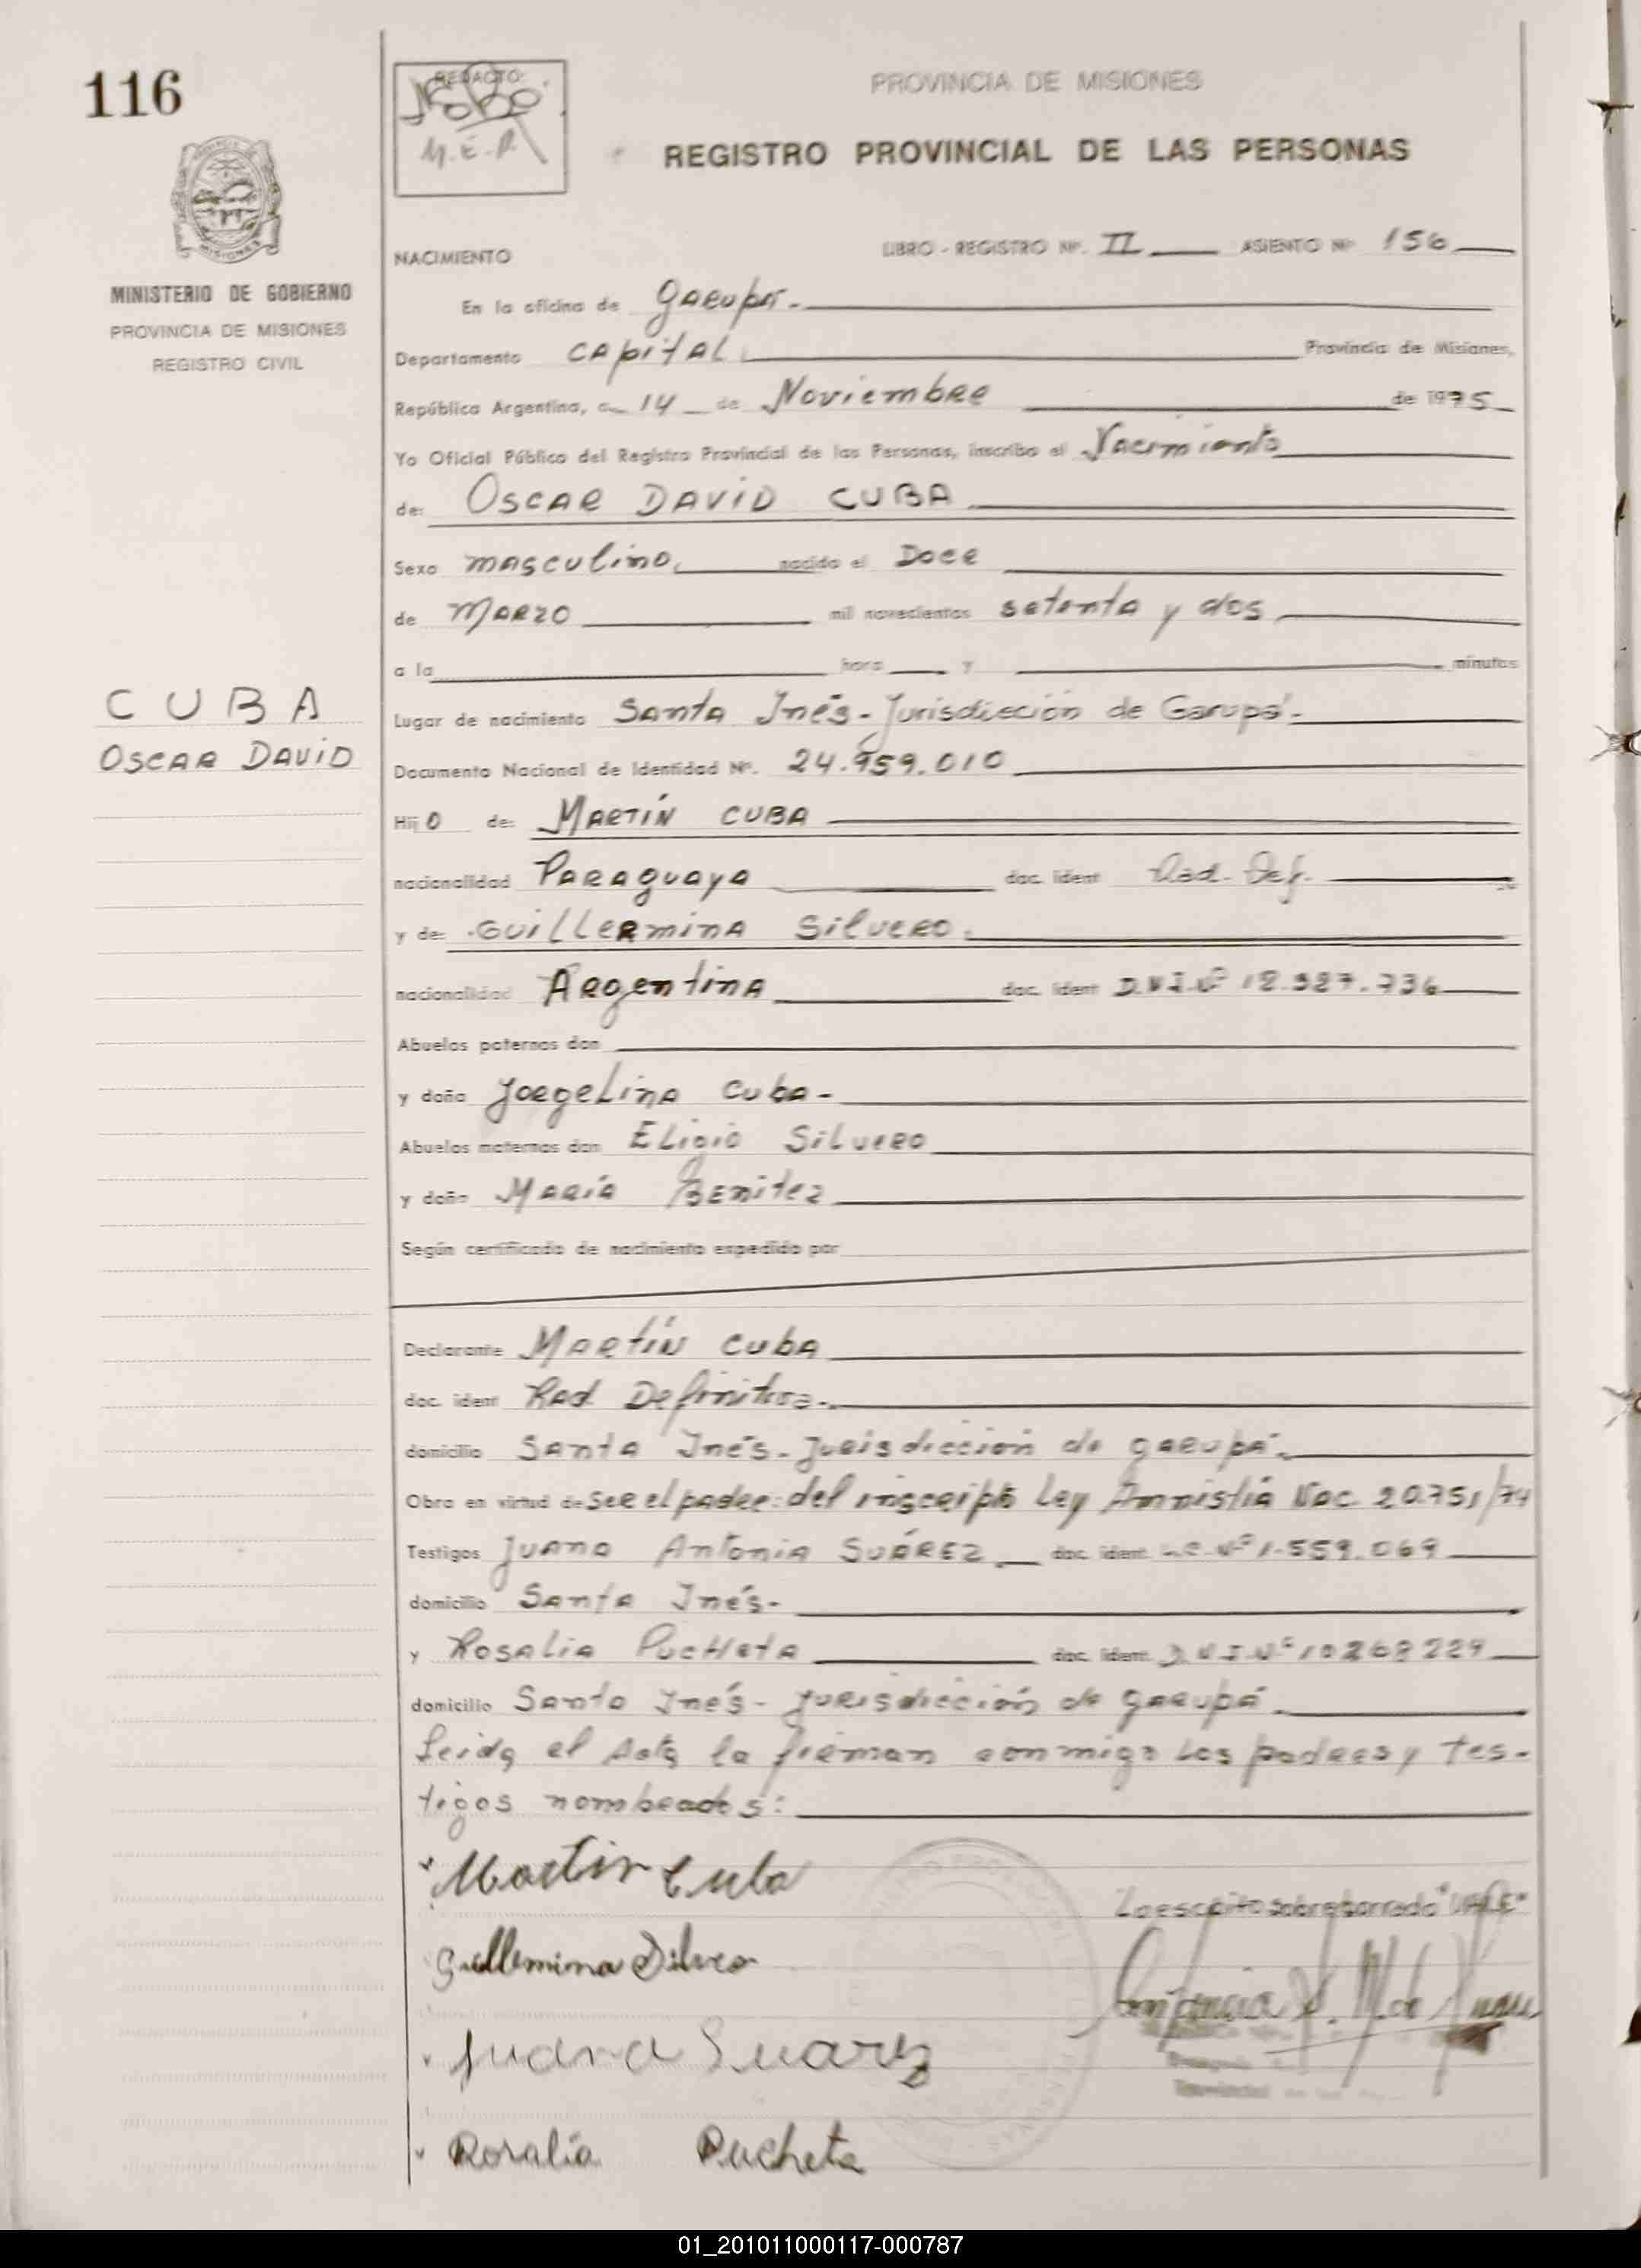 116
REDACTO:
M.E.R.
PROVINCIA DE MISIONES
REGISTRO PROVINCIAL DE LAS PERSONAS
MISIONES
MINISTERIO DE GOBIERNO
PROVINCIA DE MISIONES
REGISTRO CIVIL
NACIMIENTO
LIBRO - REGISTRO Nº. II ASIENTO Nº 156
En la oficina de Garupá.-
Departamento CApitAL Provincia de Misiones,
República Argentina, a 14 de Noviembre de 1975
Yo Oficial Público del Registro Provincial de las Personas, inscribo el Nacimiento
de: OSCAR DAVID CUBA
Sexo masculino, nacido el Doce
de MARZO mil novecientos setenta y dos
a la hora y minutos
CUBA
OSCAR DAVID
Lugar de nacimiento Santa Inés - Jurisdicción de Garupá.-
Documento Nacional de Identidad Nº. 24.959.010
Hijo de: MARTÍN CUBA
nacionalidad PARAguaya doc. ident Rad. Def.
y de: GUiLLERminA SilvERO.
nacionalidad ARgentinA doc. ident D.N.I.Nº 12.327.736
Abuelos paternos don
y doña JorgeLina Cuba-
Abuelos maternos don ELigio SiLvERO
y doña MARÍA BENitez
Según certificado de nacimiento expedido por
Declarante MARtíN CubA
doc. ident Rad. Definitiva.-
domicilio SAntA Inés - Jurisdicción de gaRupá.-
Obra en virtud de SER el padre: del inscripto Ley Amnistía Nac. 20.751/74
Testigos Juana Antonia SUÁREZ doc. ident L.C.Nº 1.559.069
domicilio Santa Inés-
y RosaLia PucHeta doc. ident. D.N.I.Nº 10268229
domicilio Santa Inés - Jurisdicción de garupá.
Leida el Acta la firman conmigo los padres y tes-
tigos nombrados:
Martin Cuba
Lo escrito sobreborrado "VALE"
Guillermina Silvero
Juana Suarez
Rosalia Pucheta
01_201011000117-000787